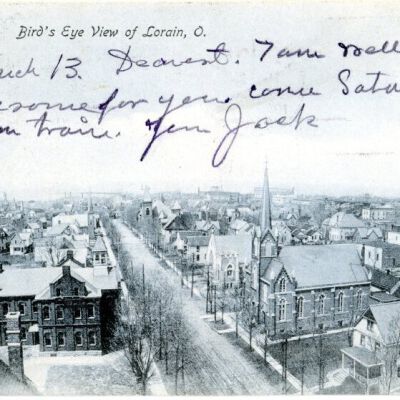 Bird's Eye View of Lorain, O.
March 13. Dearest. I am well
for you, come Satu
train. Jack